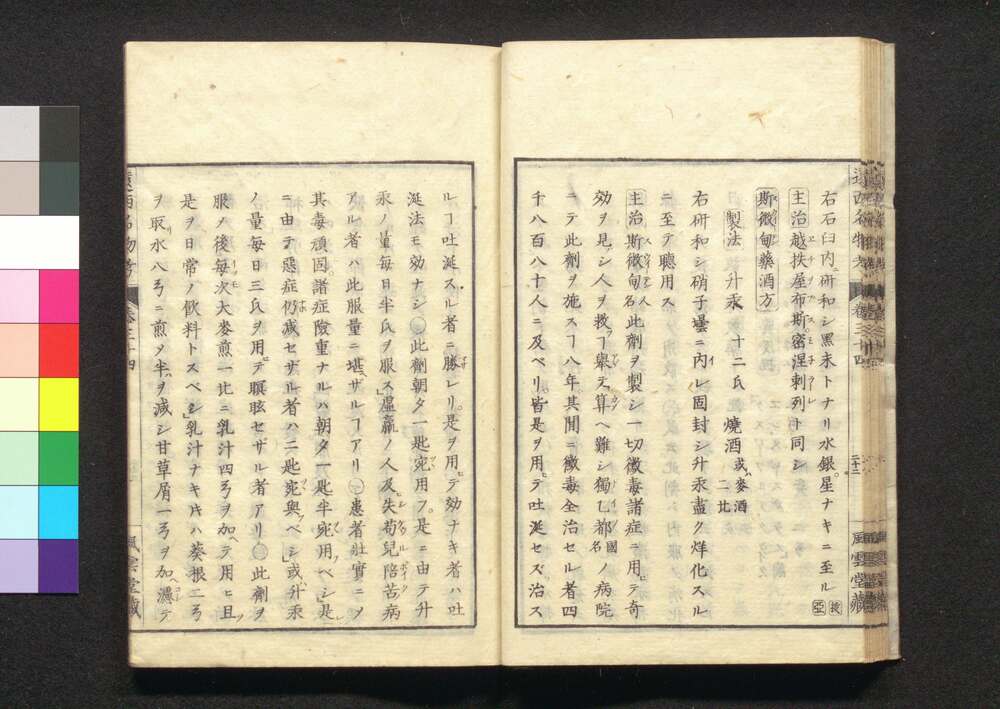 右石臼内ニ研和シ黒末トナリ水銀星ナキニ至ル
主治越挟屋布斯密涅剌列ト同シ
斯微甸藥酒方
製法 升汞 十二氏 燒酒或ハ麥酒 二比
右研和シ硝子壜ニ内レ固封シ升汞盡ク烊化スル
ニ至テ聽用ス
主治斯微甸人名此劑ヲ製シ一切黴毒諸症ニ用ヒテ奇
効ヲ見シ人ヲ救フヿ擧テ算ヘ難シ獨乙都國名ノ病院
ニテ此劑ヲ施スヿ八年其間ニ黴毒全治セル者四
千八百八十人ニ及ベリ皆是ヲ用ヒテ吐涎セズ治ス
ルヿ吐涎スル者ニ勝レリ是ヲ用ヒテ効ナキ者ハ吐
涎法モ効ナシ○此劑朝夕一匙宛用フ是ニ由テ升
汞ノ量毎日半氏ヲ服ス虚羸ノ人及ヒ失苟兒陪苦病
アル者ハ此服量ニ堪ヘザルヿアリ○患者壯實ニシ
其毒頑固諸症險重ナルハ朝夕一匙半宛用ベシ是レ
ニ由テ惡症仍減セザル者ハ二匙宛與ベシ或ハ升汞
ノ量毎日三氏ヲ用ヒテ瞑眩セザル者アリ○此劑ヲ
服メ後毎次大麥煎一比ニ乳汁四弓ヲ加ヘテ用ヒ且ツ
是ヲ日常ノ飲料トスベシ乳汁ナキ片ハ葵根二弓
ヲ取リ水八弓ニ煎メ半ヲ減シ甘草屑一弓ヲ加ヘ濃テ
遠西名物考 卷三十四
風雲堂藏